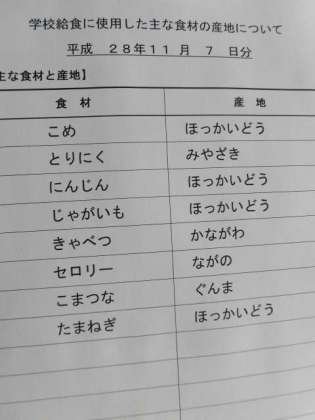 学校給食に使用した主な食材の産地について
平成 28年11 月 7 日分
主な食材と産地】
食 材 産 地
こめ ほっかいどう
とりにく みやざき
にんじん ほっかいどう
じゃがいも ほっかいどう
きゃべつ かながわ
セロリー ながの
こまつな ぐんま
たまねぎ ほっかいどう